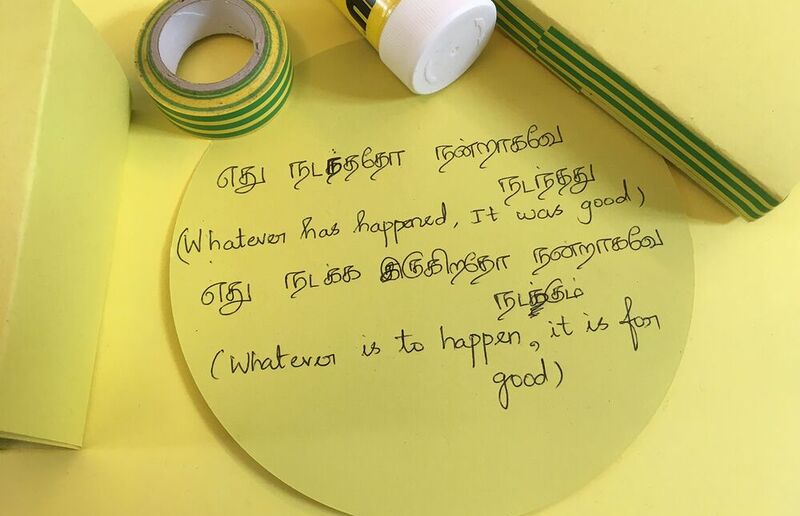 எது நடந்ததோ நன்றாகவே
நடந்தது
(Whatever has happened, It was good)
எது நடக்க இருகிறதோ நன்றாகவே
நடக்கும்
(Whatever is to happen, it is for
good)